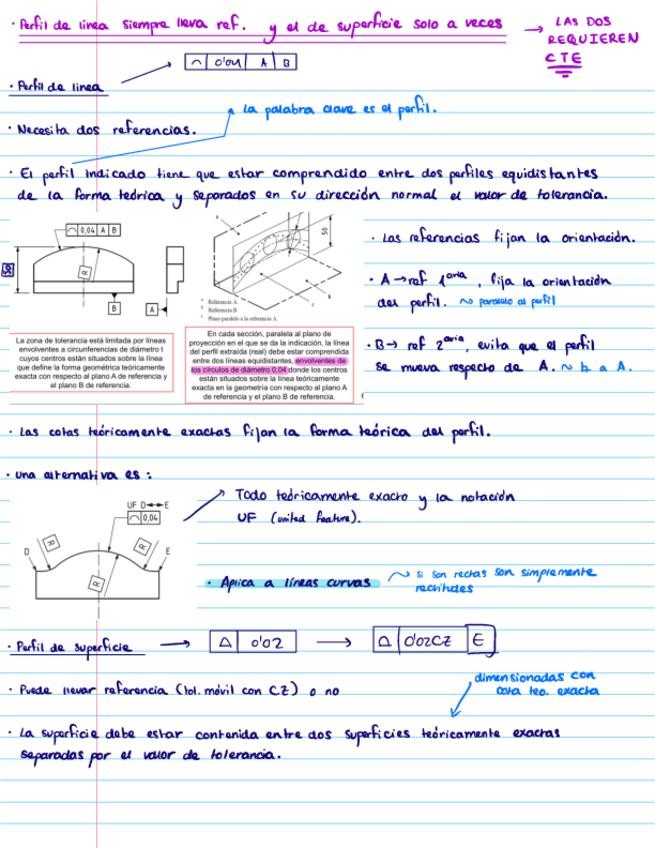 · Perfil de linea siempre lleva ref. y el de superficie solo a veces → LAS DOS
REQUIEREN
CTE
· Perfil de linea → ⌒ 0'04 A B
La palabra clave es el perfil.
· Necesita dos referencias.
· El perfil indicado tiene que estar comprendido entre dos perfiles equidistantes
de la forma teórica y separados en su dirección normal el valor de tolerancia.
⌒ 0,04 A B
50
R
B
A
a
b
c
50
a Referencia A.
b Referencia B.
c Plano paralelo a la referencia A.
· Las referencias fijan la orientación.
· A → ref 1aria, fija la orientación
del perfil. ~ paralelo al perfil
· B → ref 2aria, evita que el perfil
se mueva respecto de A. ~ b a A.
La zona de tolerancia está limitada por líneas
envolventes a circunferencias de diámetro t
cuyos centros están situados sobre la línea
que define la forma geométrica teóricamente
exacta con respecto al plano A de referencia y
el plano B de referencia.
En cada sección, paralela al plano de
proyección en el que se da la indicación, la línea
del perfil extraída (real) debe estar comprendida
entre dos líneas equidistantes, envolventes de
los círculos de diámetro 0,04 donde los centros
están situados sobre la línea teóricamente
exacta en la geometría con respecto al plano A
de referencia y el plano B de referencia.
· Las cotas teóricamente exactas fijan la forma teórica del perfil.
· Una alternativa es:
UF D↔E
⌒ 0,04
D
R
R
E
R
Todo teóricamente exacto y la notación
UF (united feature).
· Aplica a líneas curvas ~ Si son rectas son simplemente
rectitudes
· Perfil de superficie → ⌓ 0'02 → ⌓ 0'02CZ E
· Puede llevar referencia (tol. móvil con CZ) o no
dimensionadas con
cota teo. exacta
· La superficie debe estar contenida entre dos superficies teóricamente exactas
separadas por el valor de tolerancia.